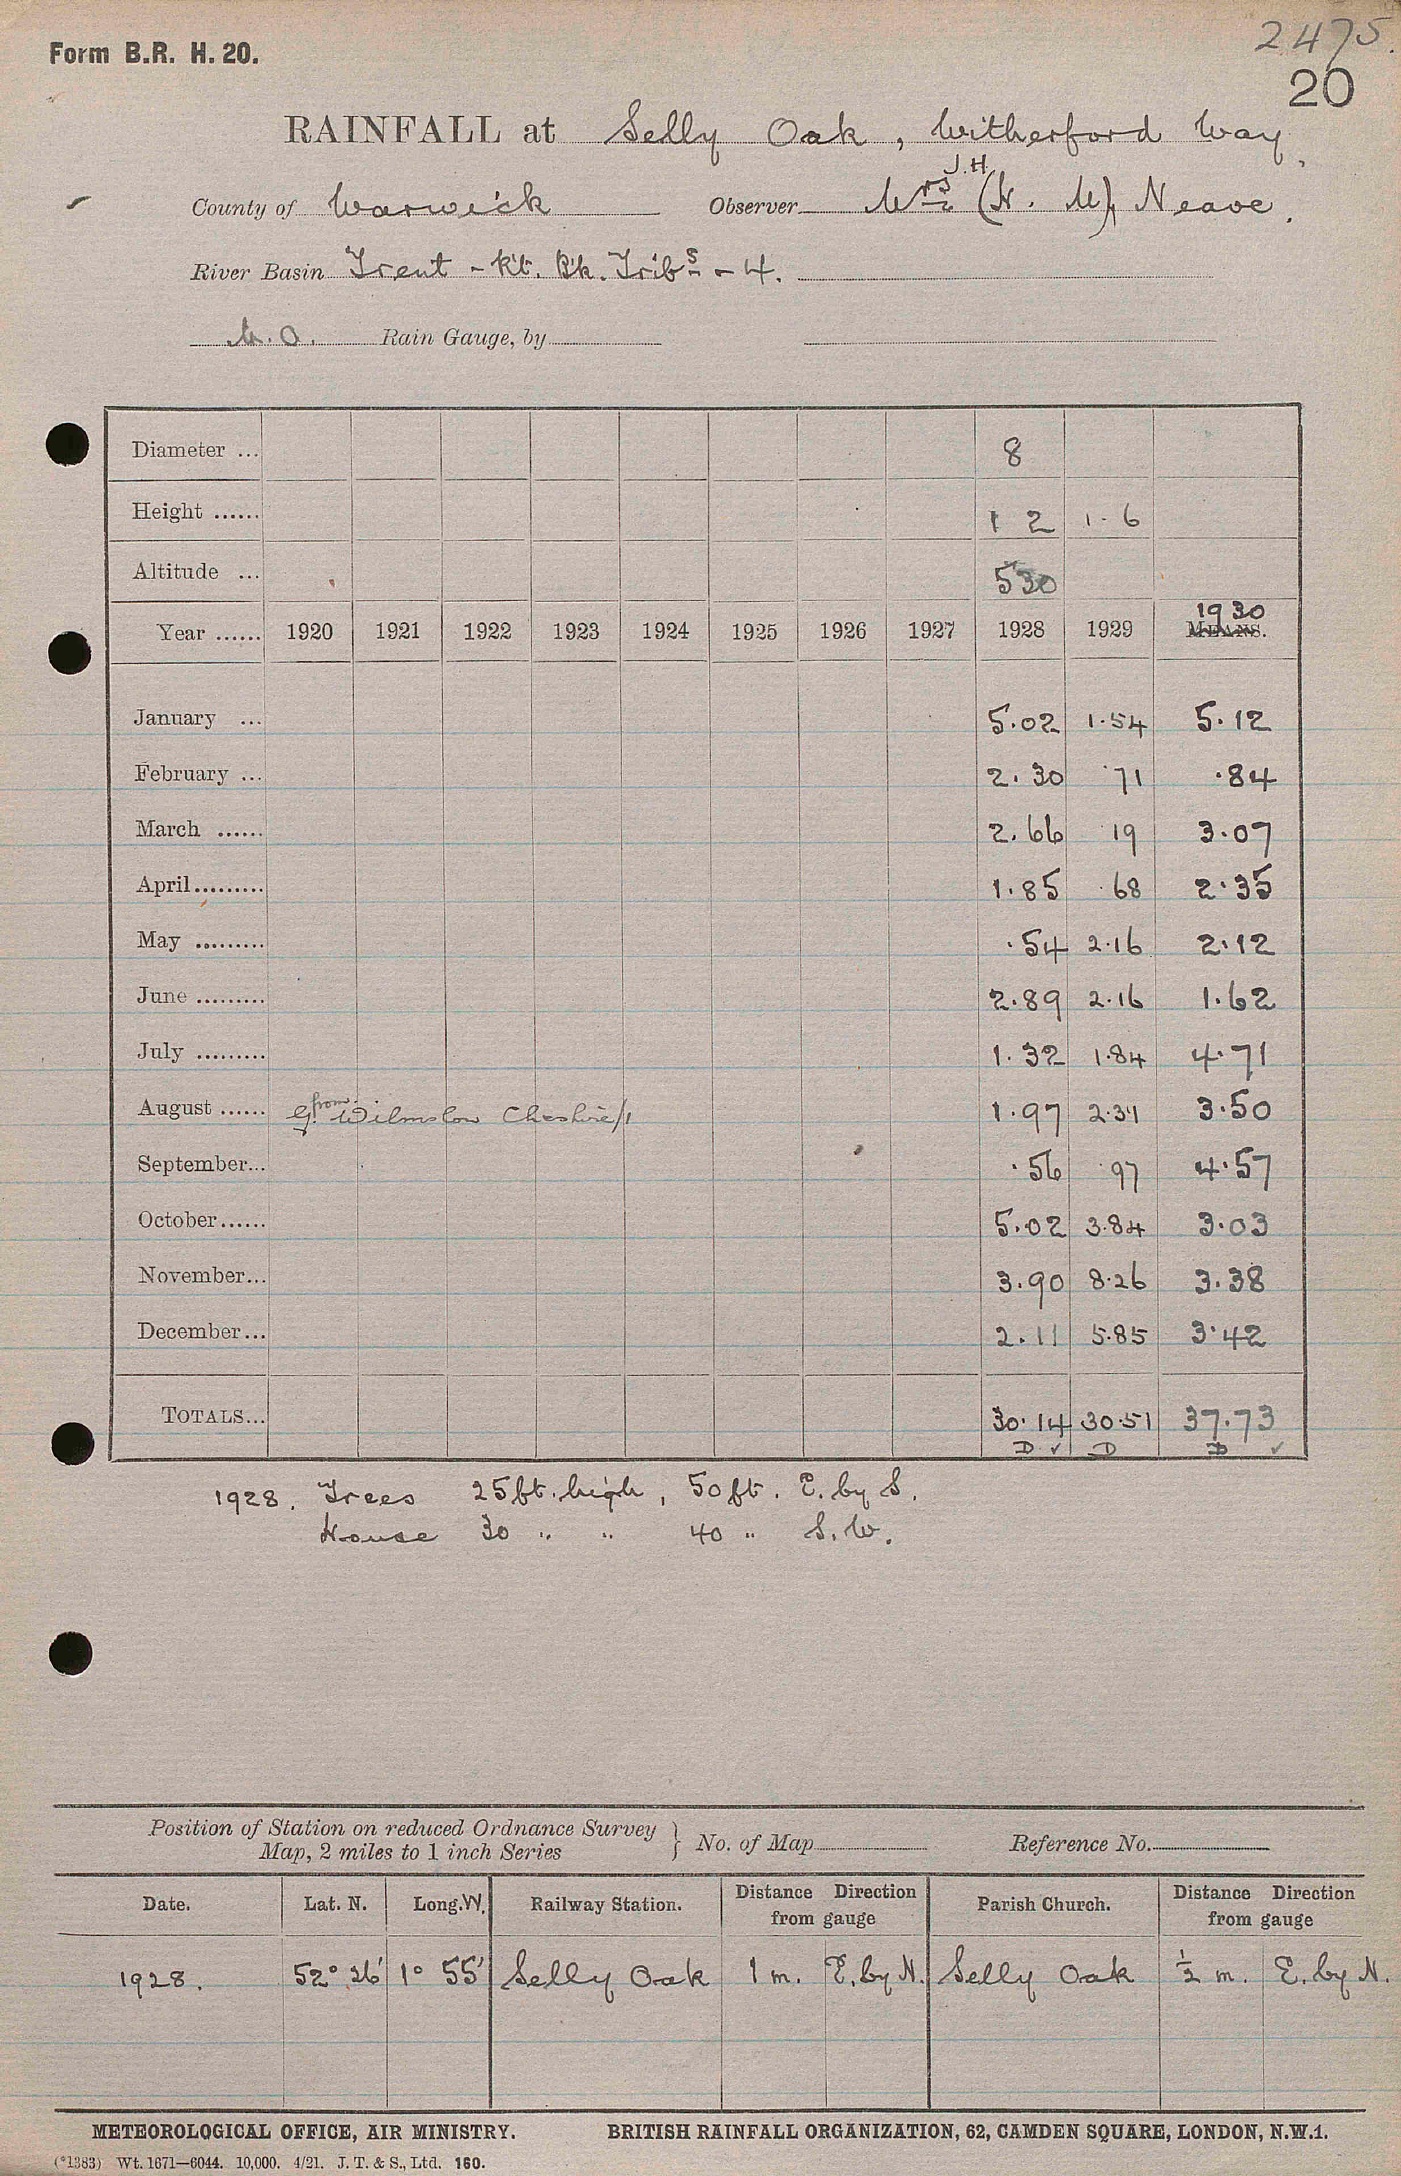 2475.
Form B.R. H. 20.
20
RAINFALL at Selly Oak, Witherford Way,
County of Warwick Observer Mrs J.H. (H. M.) Neave.
River Basin Trent - Rt. Bk. Tribs - 4.
M.O. Rain Gauge, by
Diameter ... 8
Height ...... 1 2 1·6
Altitude ... 530
Year ...... 1920 1921 1922 1923 1924 1925 1926 1927 1928 1929 MEANS. 1930
January ... 5.02 1.54 5.12
February ... 2.30 .71 .84
March ...... 2.66 .19 3.07
April......... 1.85 .68 2.35
May ......... .54 2.16 2.12
June ......... 2.89 2.16 1.62
July ......... 1.32 1.84 4.71
August ...... from Wilmslow Cheshire/1 1.97 2.31 3.50
September... .56 .97 4.57
October...... 5.02 3.84 3.03
November... 3.90 8.26 3.38
December... 2.11 5.85 3.42
TOTALS... 30.14 30.51 37.73
D ✓ D D ✓
1928. Trees 25 ft. high, 50 ft. E. by S.
House 30 " " 40 " S.W.
Position of Station on reduced Ordnance Survey
Map, 2 miles to 1 inch Series } No. of Map Reference No.
Date. Lat. N. Long. W. Railway Station. Distance Direction from gauge Parish Church. Distance Direction from gauge
1928. 52° 26' 1° 55' Selly Oak 1 m. E. by N. Selly Oak ½ m. E. by N.
METEOROLOGICAL OFFICE, AIR MINISTRY. BRITISH RAINFALL ORGANIZATION, 62, CAMDEN SQUARE, LONDON, N.W.1.
(*1383) Wt. 1671—6044. 10,000. 4/21. J. T. & S., Ltd. 160.